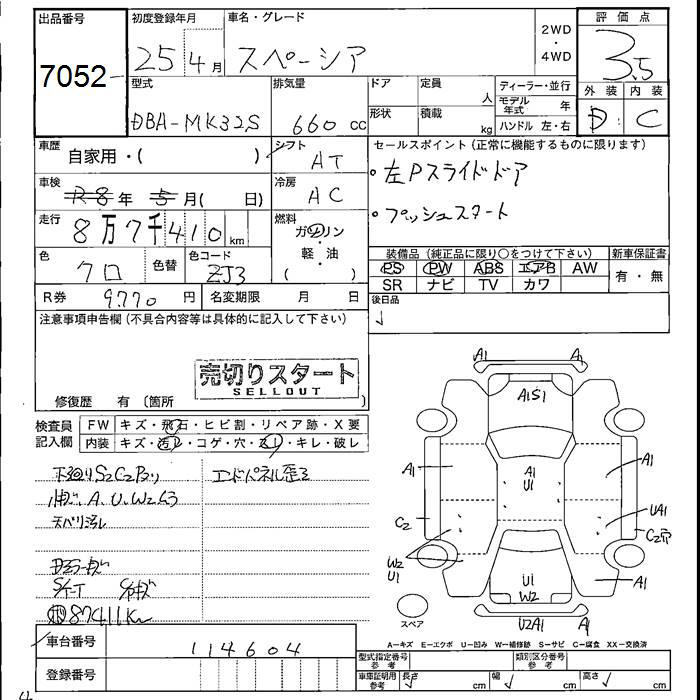 出品番号
7052
初度登録年月
25 4月
車名・グレード
スペーシア
2WD
・
4WD
評価点
3.5
型式
DBA-MK32S
排気量
660 cc
ドア
形状
定員
人
積載
kg
ディーラー・並行
モデル年式 年
ハンドル 左・右
外装 内装
D C
車歴
自家用・( )
シフト
AT
車検
R8年 5月( 日)
冷房
AC
走行
8万7千410km
燃料
ガソリン
・
軽・油
( )
色
クロ
色替
色コード
ZJ3
R券 9770円
名変期限 月 日
セールスポイント (正常に機能するものに限ります)
・左Pスライドドア
・プッシュスタート
装備品 (純正品に限り○をつけて下さい)
PS PW ABS エアB AW
SR ナビ TV カワ
新車保証書
有・無
後日品
注意事項申告欄 (不具合内容等は具体的に記入して下さい)
売切りスタート
SELLOUT
修復歴 有 〔箇所 〕
検査員
記入欄
FW キズ・飛石・ヒビ割・リペア跡・X要
内装 キズ・汚レ・コゲ・穴・スリ・キレ・破レ
下廻りS2C2有り
エンドパネル歪ミ
A、U、W2
天バリ汚レ
87411Km
A1 A1
A1S1
A1
A1
A1
U1
C2
UA1
C2穴
W2
U1
U1
W2
A1
U2A1 A1
スペア
A-キズ E-エクボ U-凹み W-補修跡 S-サビ C-腐食 XX-交換済
車台番号 114604
登録番号
型式指定番号
参考
類別区分番号
参考
車庫証明用
参考
長さ cm 幅 cm 高さ cm